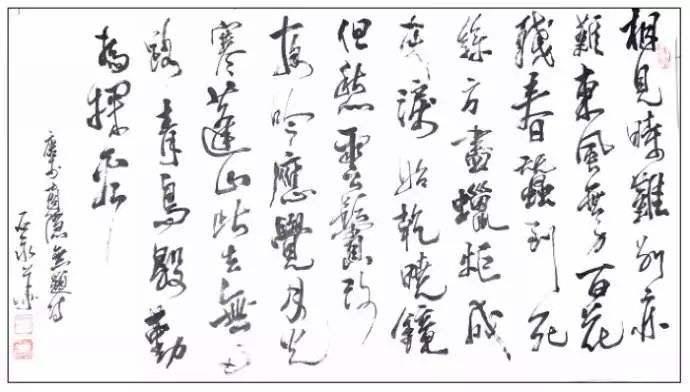 相見時難別亦
難東風無力百花
殘春蠶到死
絲方盡蠟炬成
灰淚始乾曉鏡
但愁雲鬢改
夜吟應覺月光
寒蓬山此去無多
路青鳥殷勤
為探看
李商隱無題詩